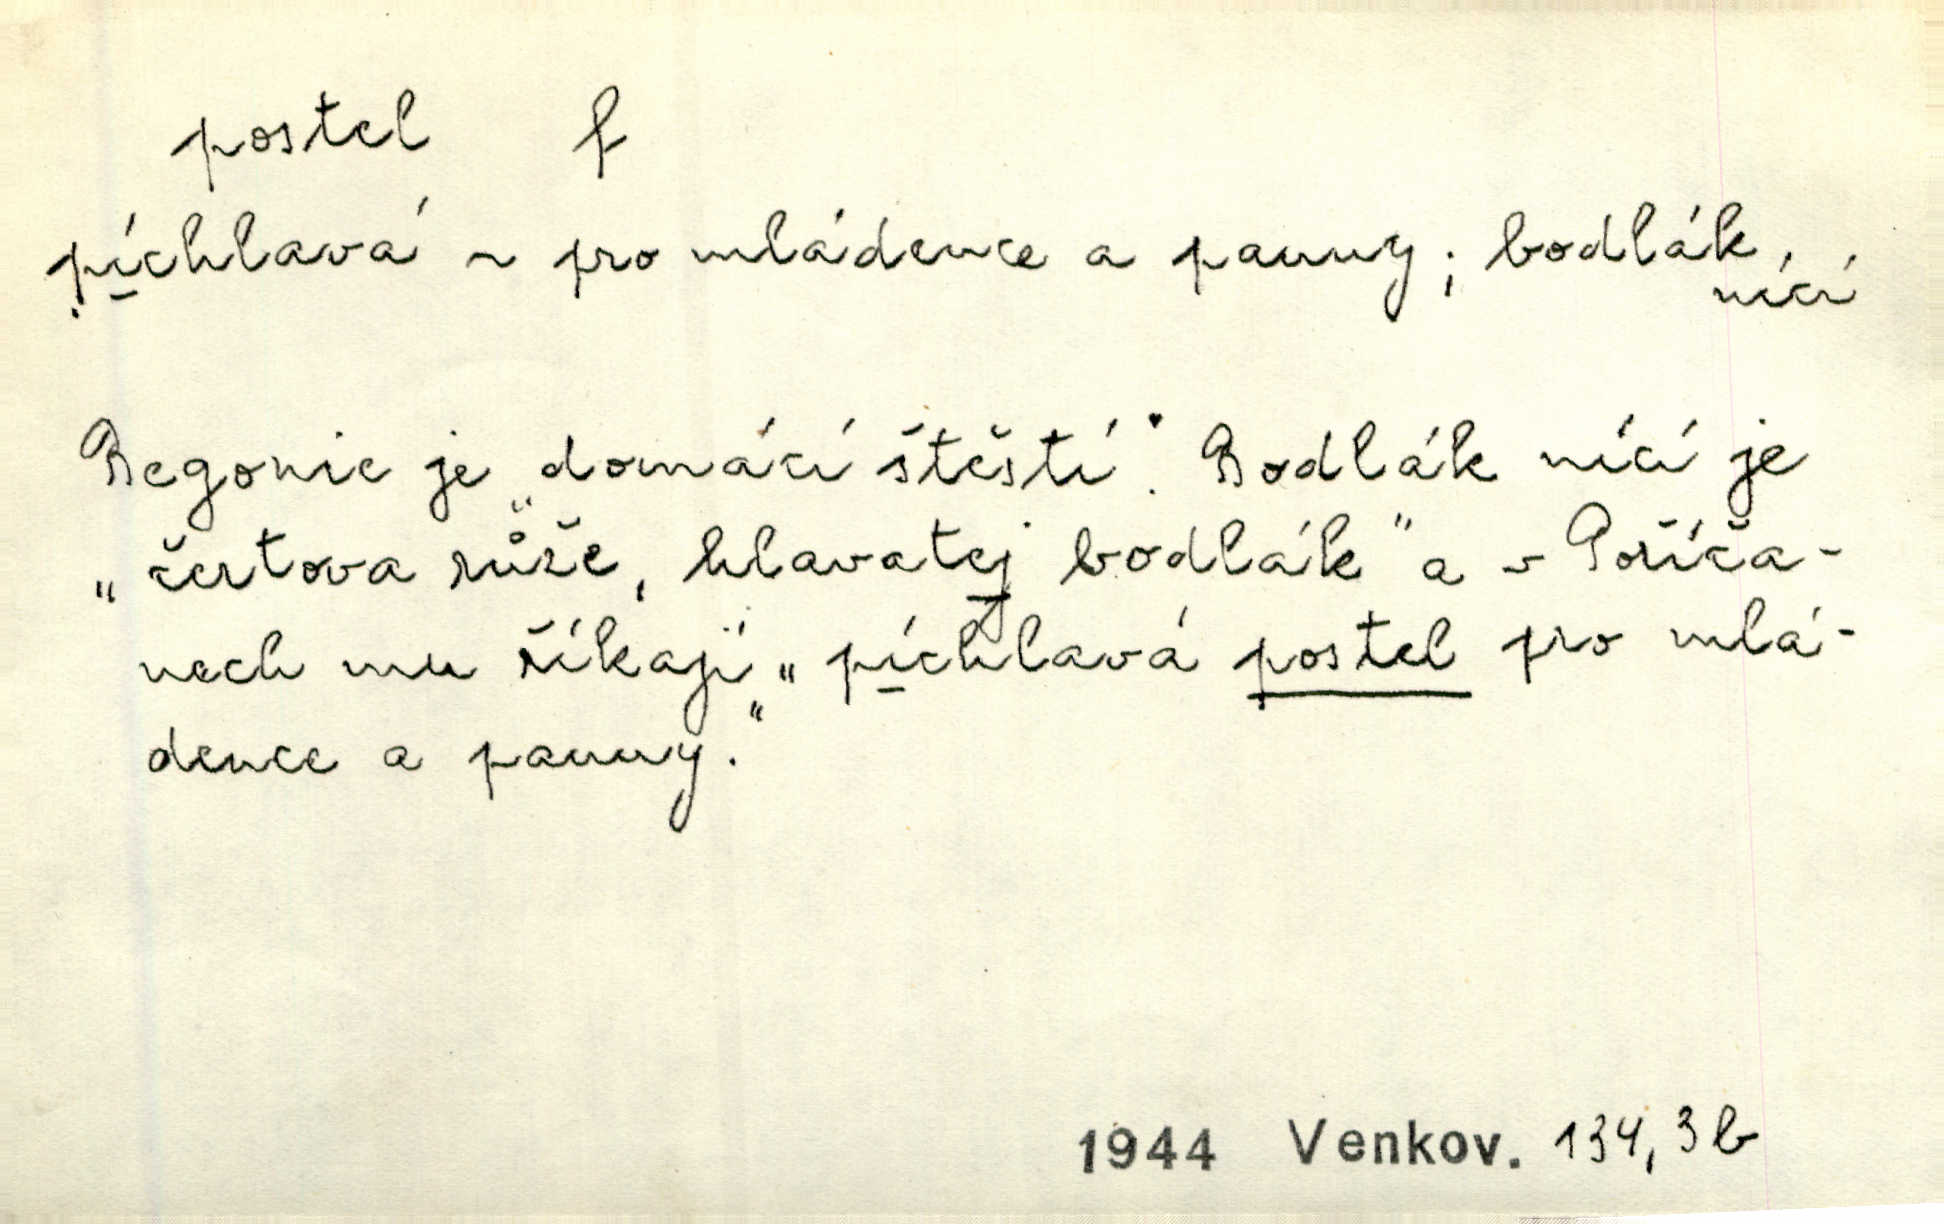 postel f
píchlavá ~ pro mládence a panny; bodlák
nící
Begonie je „domácí štěstí". Bodlák nící je
„čertova růže, hlavatej bodlák" a v Poříča-
nech mu říkají „píchlavá postel pro mlá-
dence a panny."
1944 Venkov. 134, 3b